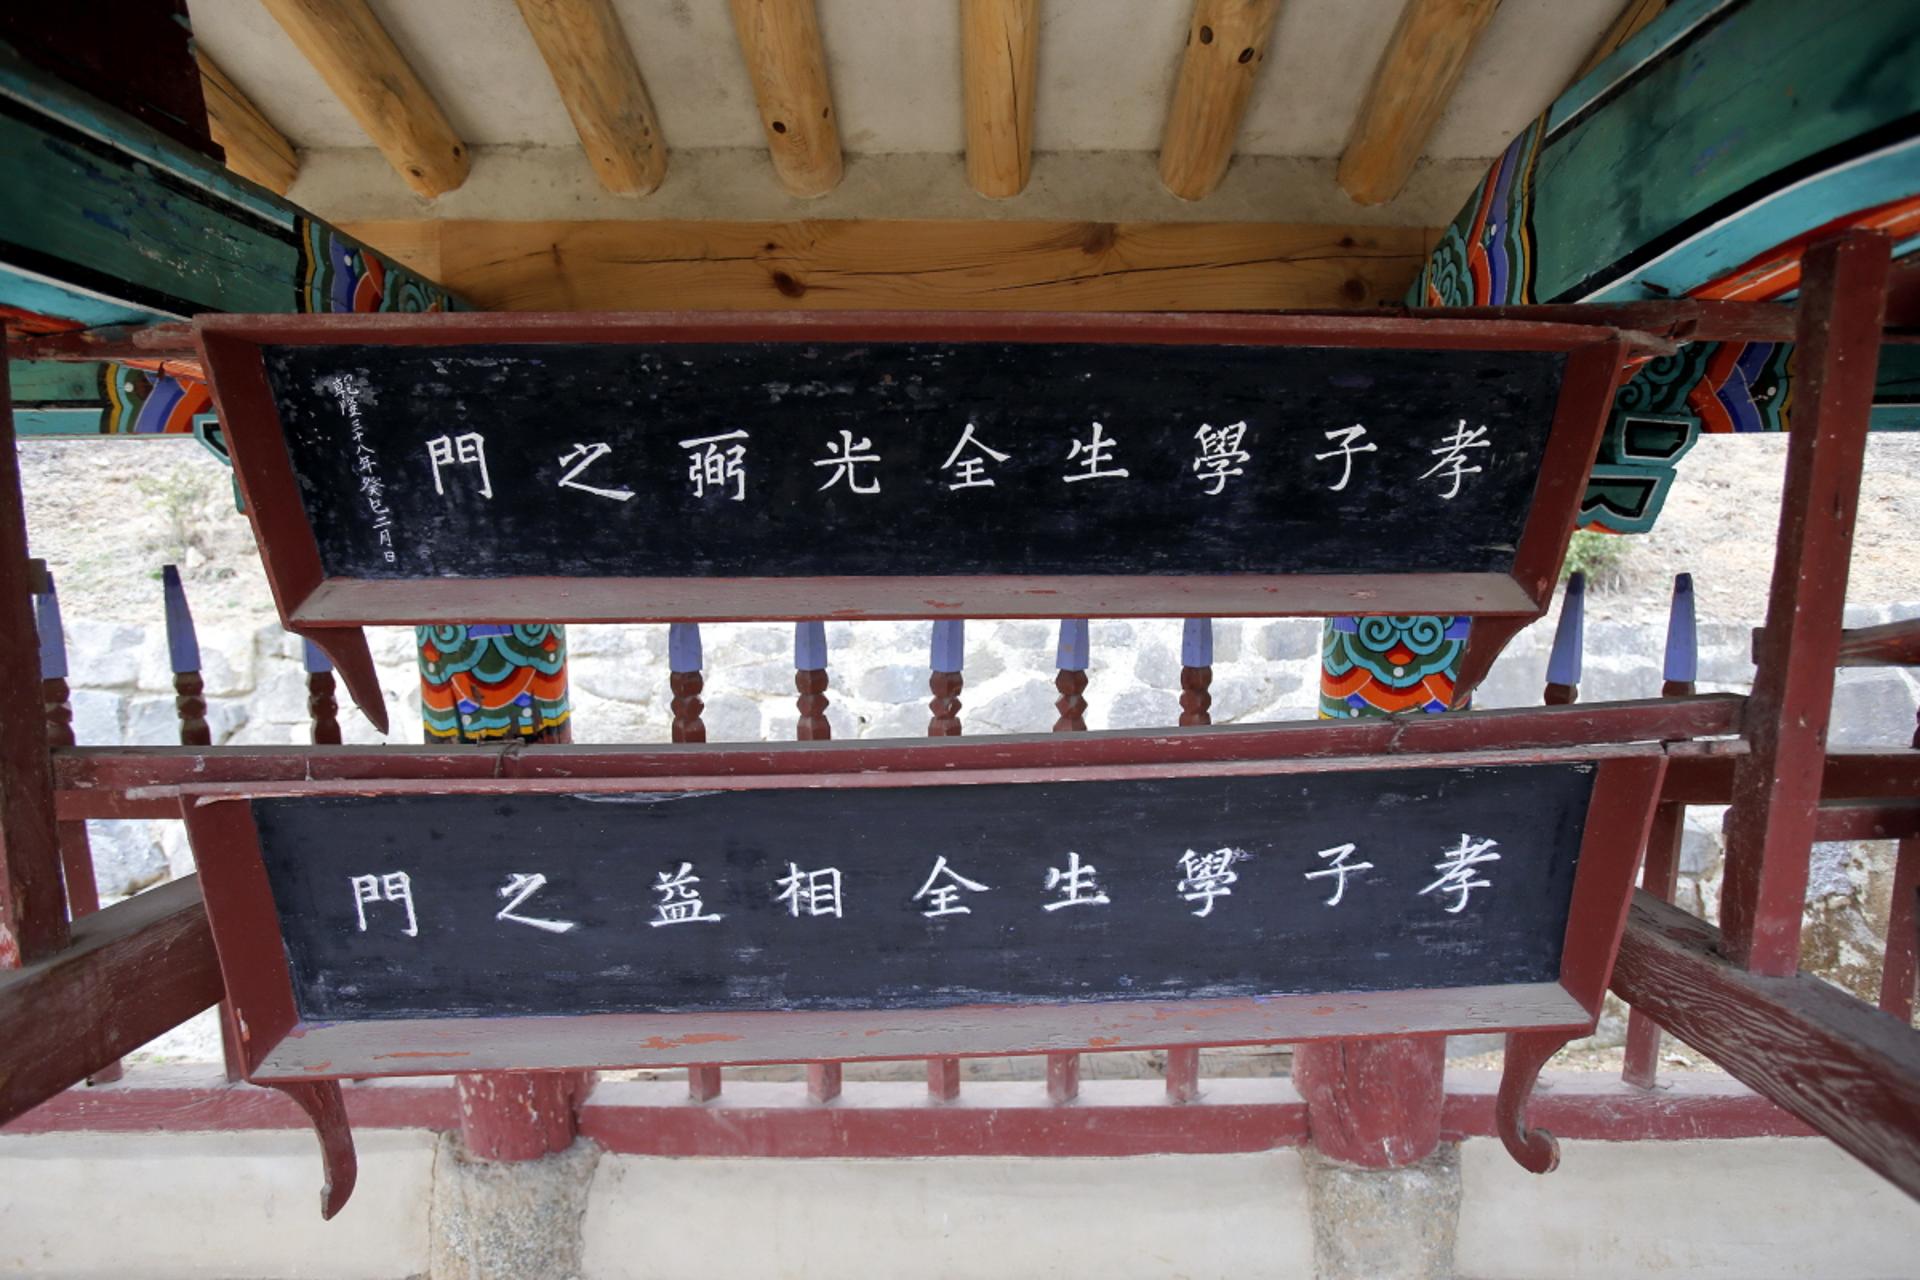 孝子學生全光弼之門
乾隆三十八年癸巳二月日
孝子學生全相益之門